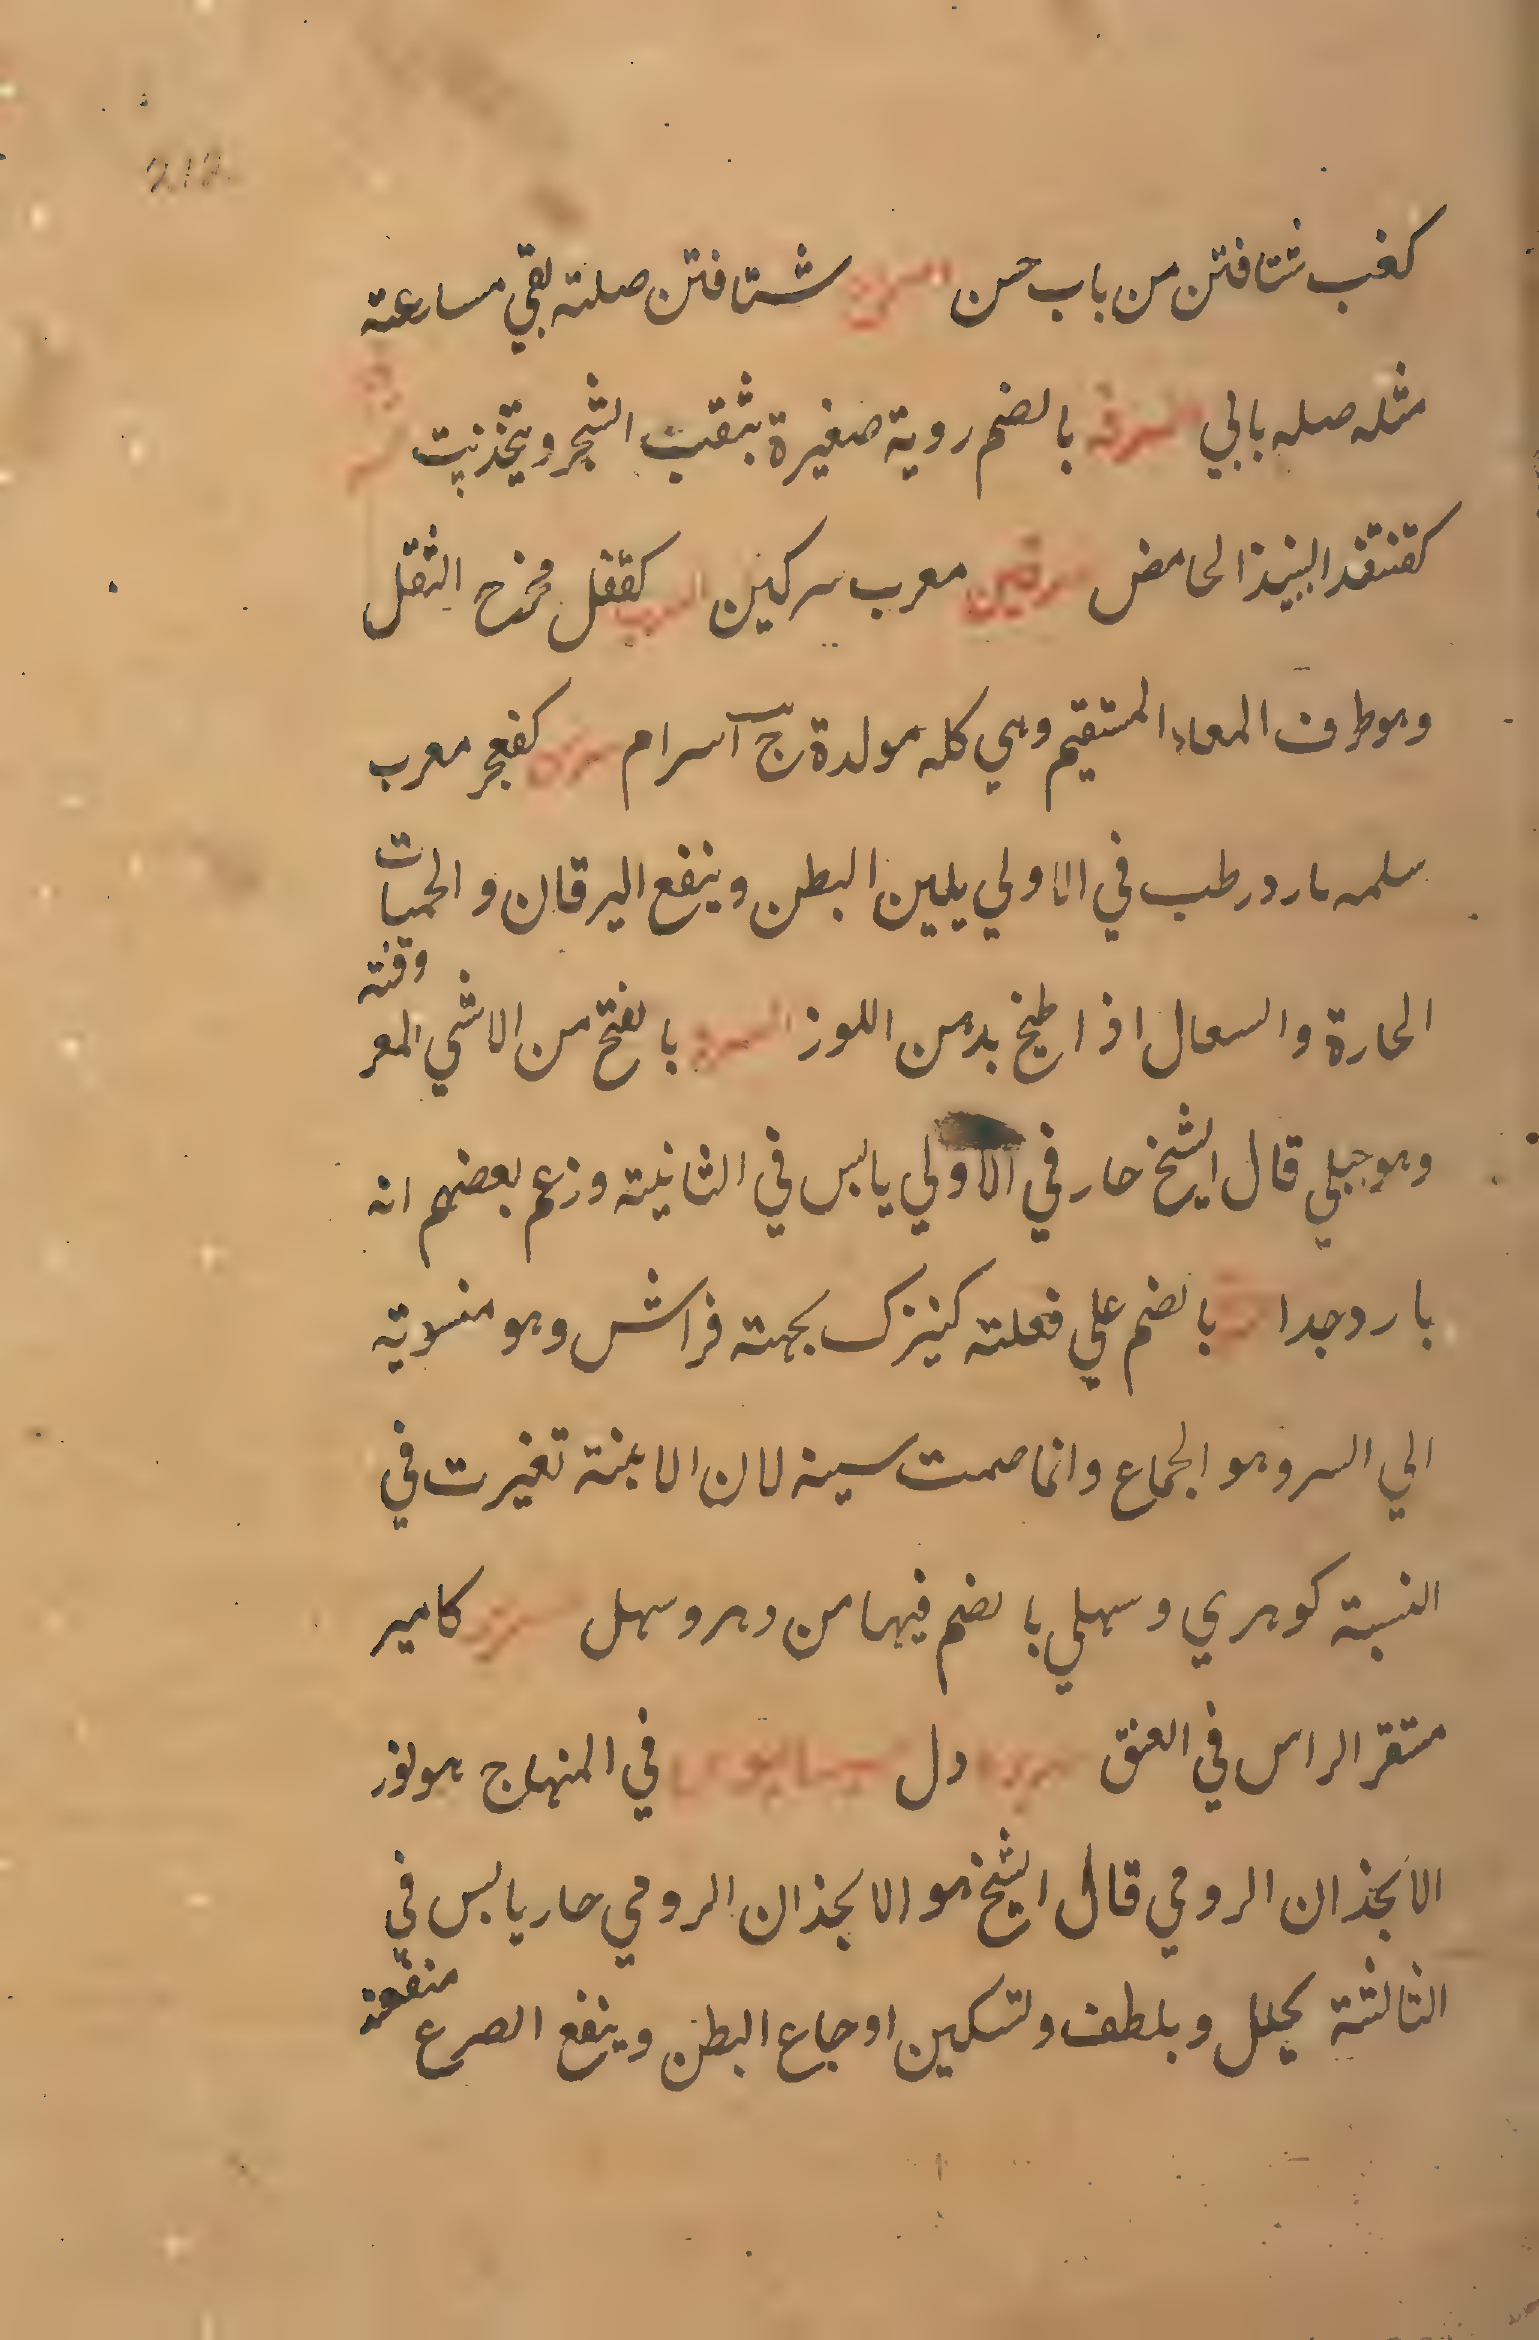 212
كغب شتافتن من باب حسن شتافتن صلته بقي مسارعته
مثله صله بالي السرفه بالضم روية صغيرة بثقب الشجر ويتخذ بيت
كقنفذ النبيذ الحامض سرقين معرب سركين السرم كقفل مخرج الثقل
وهو طرف المعاء المستقيم وهي كله مولدة ج اسرام كفعجر معرب
سلمه بارد رطب في الاولي يلين البطن وينفع اليرقان و الحميات
الحارة والسعال اذا طبخ بدهن اللوز بالفتح من الاشي المعروفته
وهو جبلي قال الشيخ حار في الاولي يابس في الثانية وزعم بعضهم انه
بارد جدا بالضم علي فعلته كنيزك بجهته فراش وهو منسوبته
الي السر وهو الجماع وانما صمت سينه لان الابنة تغيرت في
النسبة كوهري وسهلي بالضم فيها من دهر وسهل سرير كامير
مستقر الراس في العنق دل سيساليوس في المنهاج هو نور
الانجذان الرومي قال الشيخ هو الانجذان الرومي حار يابس في
الثالثة يحلل ويلطف ولتسكين اوجاع البطن وينفع الصرع منفعة